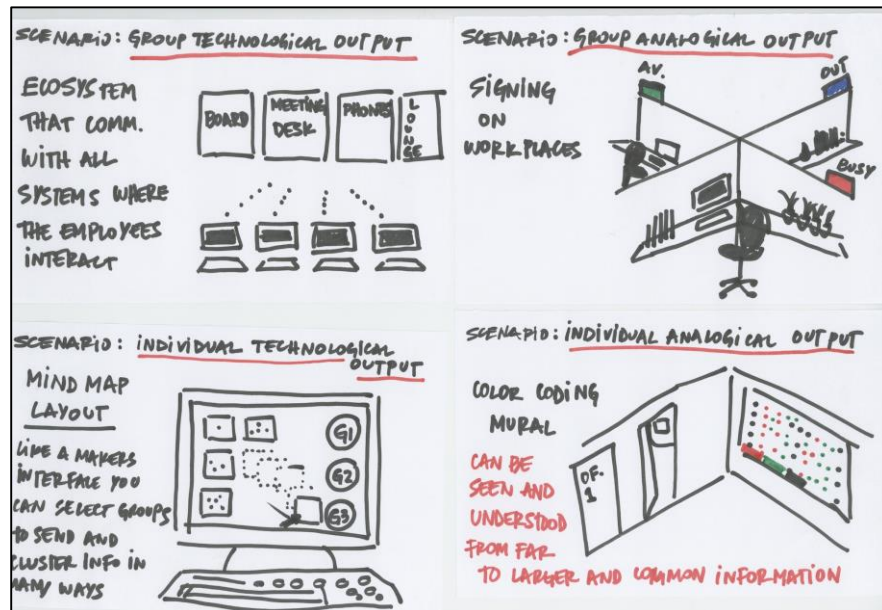 SCENARIO: GROUP TECHNOLOGICAL OUTPUT
ECOSYSTEM
THAT COMM.
WITH ALL
SYSTEMS WHERE
THE EMPLOYEES
INTERACT
BOARD
MEETING
DESK
PHONES
LOUNGE
SCENARIO: GROUP ANALOGICAL OUTPUT
SIGNING
ON
WORKPLACES
AV.
OUT
BUSY
SCENARIO: INDIVIDUAL TECHNOLOGICAL
OUTPUT
MIND MAP
LAYOUT
LIKE A MAKERS
INTERFACE YOU
CAN SELECT GROUPS
TO SEND AND
CLUSTER INFO IN
MANY WAYS
G1
G2
G3
SCENARIO: INDIVIDUAL ANALOGICAL OUTPUT
COLOR CODING
MURAL
CAN BE
SEEN AND
UNDERSTOOD
FROM FAR
TO LARGER AND COMMON INFORMATION
OF.
1